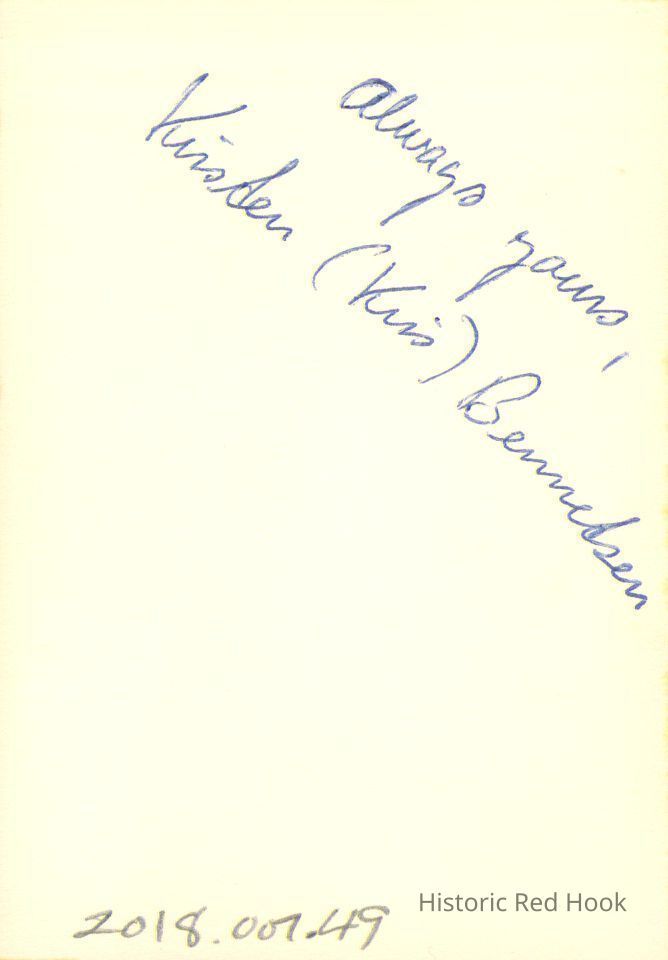 always yours,
Kirsten (Kris) Bennetsen
2018.007.49
Historic Red Hook